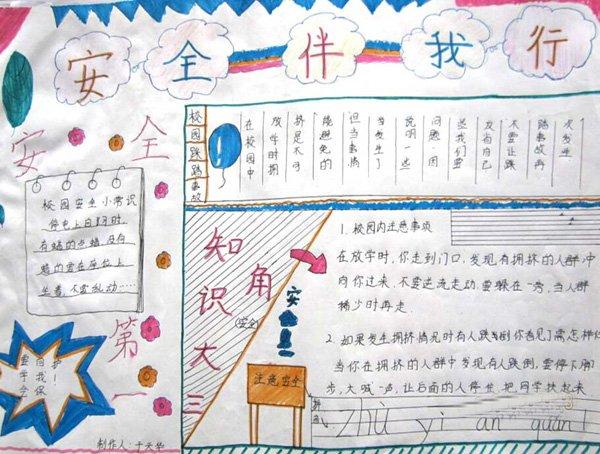 安全伴我行
安全第一
校园安全小常识
停电上自习时,
有蜡的点蜡,没有
蜡的要在座位上
坐着,不要乱动……
要学会
自我保
护!
制作人:
校园
事故
在校园中
放学时拥
挤是不可
能避免的
但当事情
当发生了
说明一些
问题,因
些我们要
不要让踩
踏事故再
次发生
知识大三角
(安全)
注意安全
1.校园内注意事项
在放学时,你走到门口,发现有拥挤的人群冲
向你过来,不要逆流走动,要躲在一旁,当人群
稀少时再走.
2.如果发生拥挤情况时有人跌倒你看见了需怎样做
当你在拥挤的人群中发现有人跌倒,要停下脚
步,大喊一声,让后面的人停下,把同学扶起来
zhù yì ān quán!